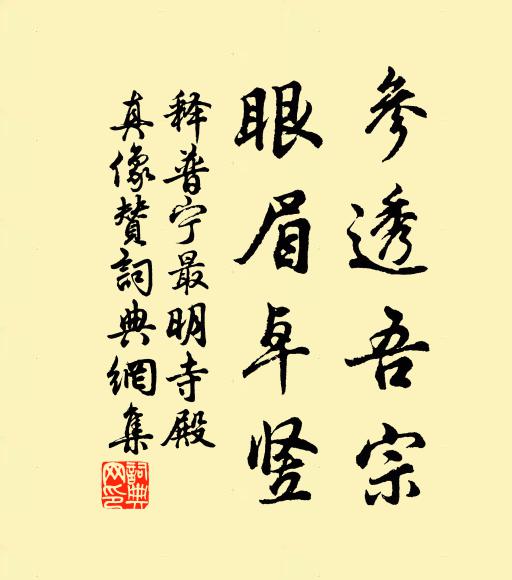 參透吾宗
眼眉卓竖
释普宁最明寺殿
真像贊詞典網集
詞典网印